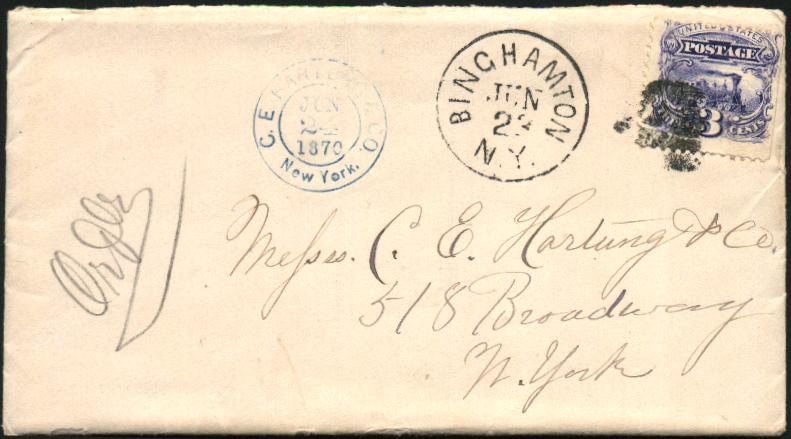 UNITED STATES
POSTAGE
3 CENTS
BINGHAMTON
JUN
N.Y.
C. E. HARTUNG & CO.
JUN
1870
New York.
Messrs. C. E. Hartung & Co.
518 Broadway
N. York